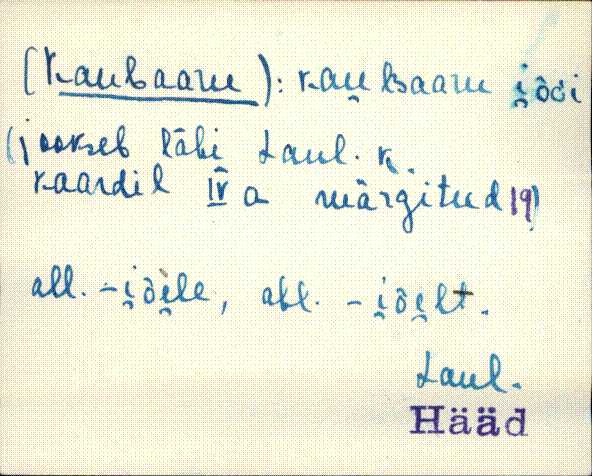 (Kaubaaru): kau̯baaru i̯õɢi
(jookseb läbi Laul. k.
kaardil IV a märgitud 19)
all. -i̯õe̯le, abl. -i̯õe̯lt.
Laul.
Hääd